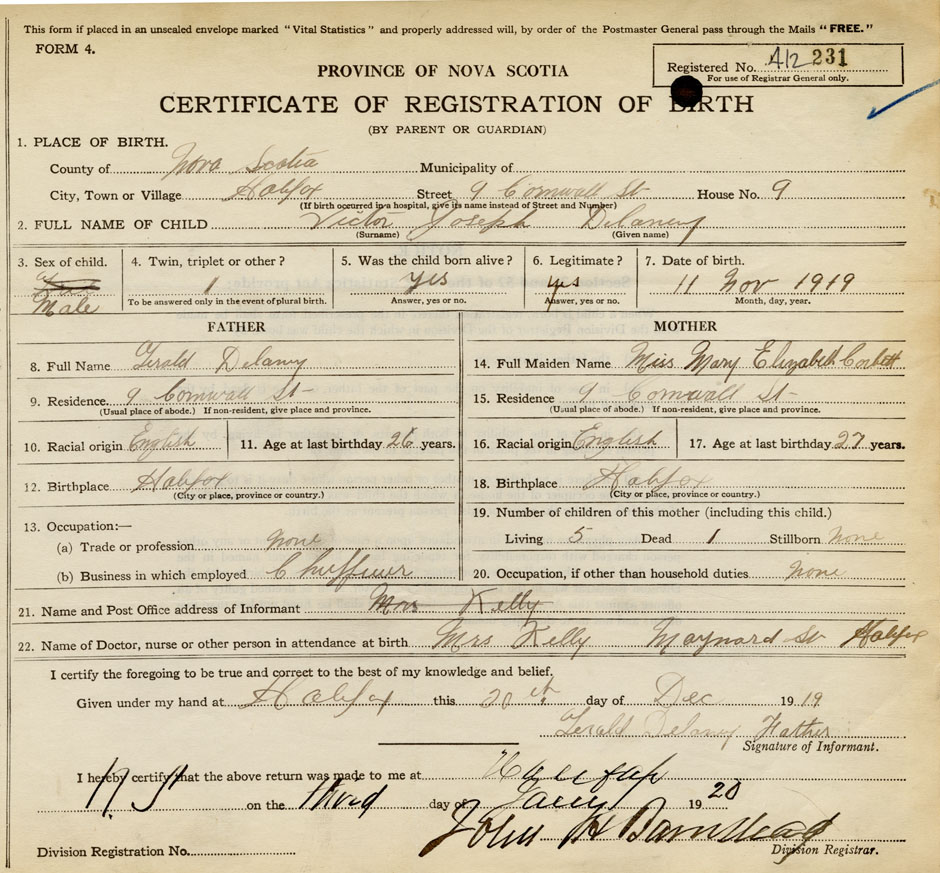 This form if placed in an unsealed envelope marked "Vital Statistics" and properly addressed will, by order of the Postmaster General pass through the Mails "FREE."
FORM 4.
Registered No. A12 231
For use of Registrar General only.
PROVINCE OF NOVA SCOTIA
CERTIFICATE OF REGISTRATION OF BIRTH
(BY PARENT OR GUARDIAN)
1. PLACE OF BIRTH.
County of Nova Scotia Municipality of
City, Town or Village Halifax Street 9 Cornwall St House No. 9
(If birth occurred in a hospital, give its name instead of Street and Number)
2. FULL NAME OF CHILD Victor Joseph Delaney
(Surname) (Given name)
3. Sex of child. 4. Twin, triplet or other? 5. Was the child born alive? 6. Legitimate? 7. Date of birth.
Male 1 yes yes 11 Nov 1919
To be answered only in the event of plural birth. Answer, yes or no. Answer, yes or no. Month, day, year.
FATHER
8. Full Name Gerald Delaney
9. Residence. 9 Cornwall St
(Usual place of abode.) If non-resident, give place and province.
10. Racial origin English 11. Age at last birthday 26 years.
12. Birthplace Halifax
(City or place, province or country.)
13. Occupation:—
(a) Trade or profession none
(b) Business in which employed Chuffiuer
MOTHER
14. Full Maiden Name Miss Mary Elizabeth Corbett
15. Residence 9 Cornwall St
(Usual place of abode.) If non-resident, give place and province.
16. Racial origin English 17. Age at last birthday 27 years.
18. Birthplace Halifax
(City or place, province or country.)
19. Number of children of this mother (including this child.)
Living 5 Dead 1 Stillborn none
20. Occupation, if other than household duties none
21. Name and Post Office address of Informant Mrs Kelly
22. Name of Doctor, nurse or other person in attendance at birth Mrs Kelly Maynard St Halifax
I certify the foregoing to be true and correct to the best of my knowledge and belief.
Given under my hand at Halifax this 20th day of Dec 1919
Gerald Delaney Father
Signature of Informant.
I hereby certify that the above return was made to me at Halifax
N.S. on the third day of Jany 1920
John H Barnstead
Division Registration No. Division Registrar.